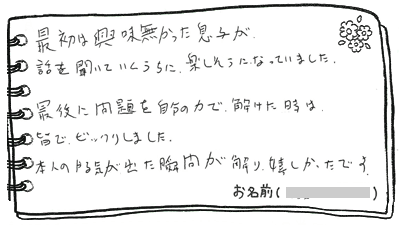 最初は興味無かった息子が、
話を聞いていくうちに、楽しそうになっていました。
最後に問題を自分の力で、解けた時は、
皆で、ビックリしました。
本人のやる気が出た瞬間が解り、嬉しかったです。
お名前( )